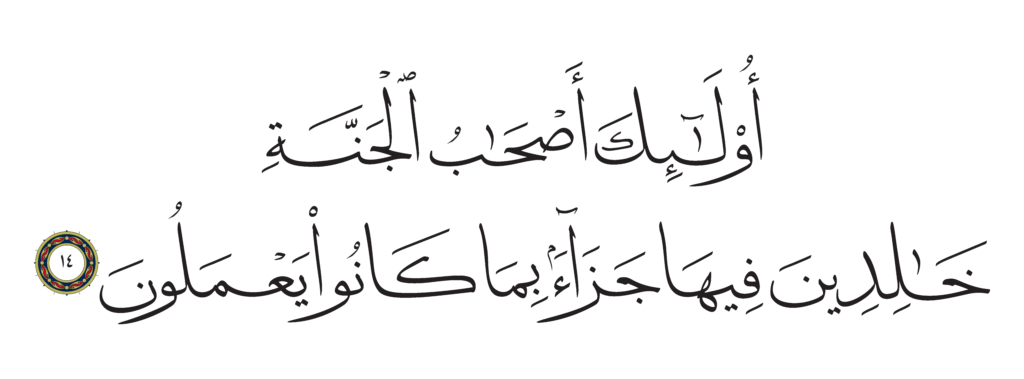 أُوْلَٰٓئِكَ أَصْحَٰبُ ٱلْجَنَّةِ
خَٰلِدِينَ فِيهَا جَزَآءَۢ بِمَا كَانُوا۟ يَعْمَلُونَ ١٤